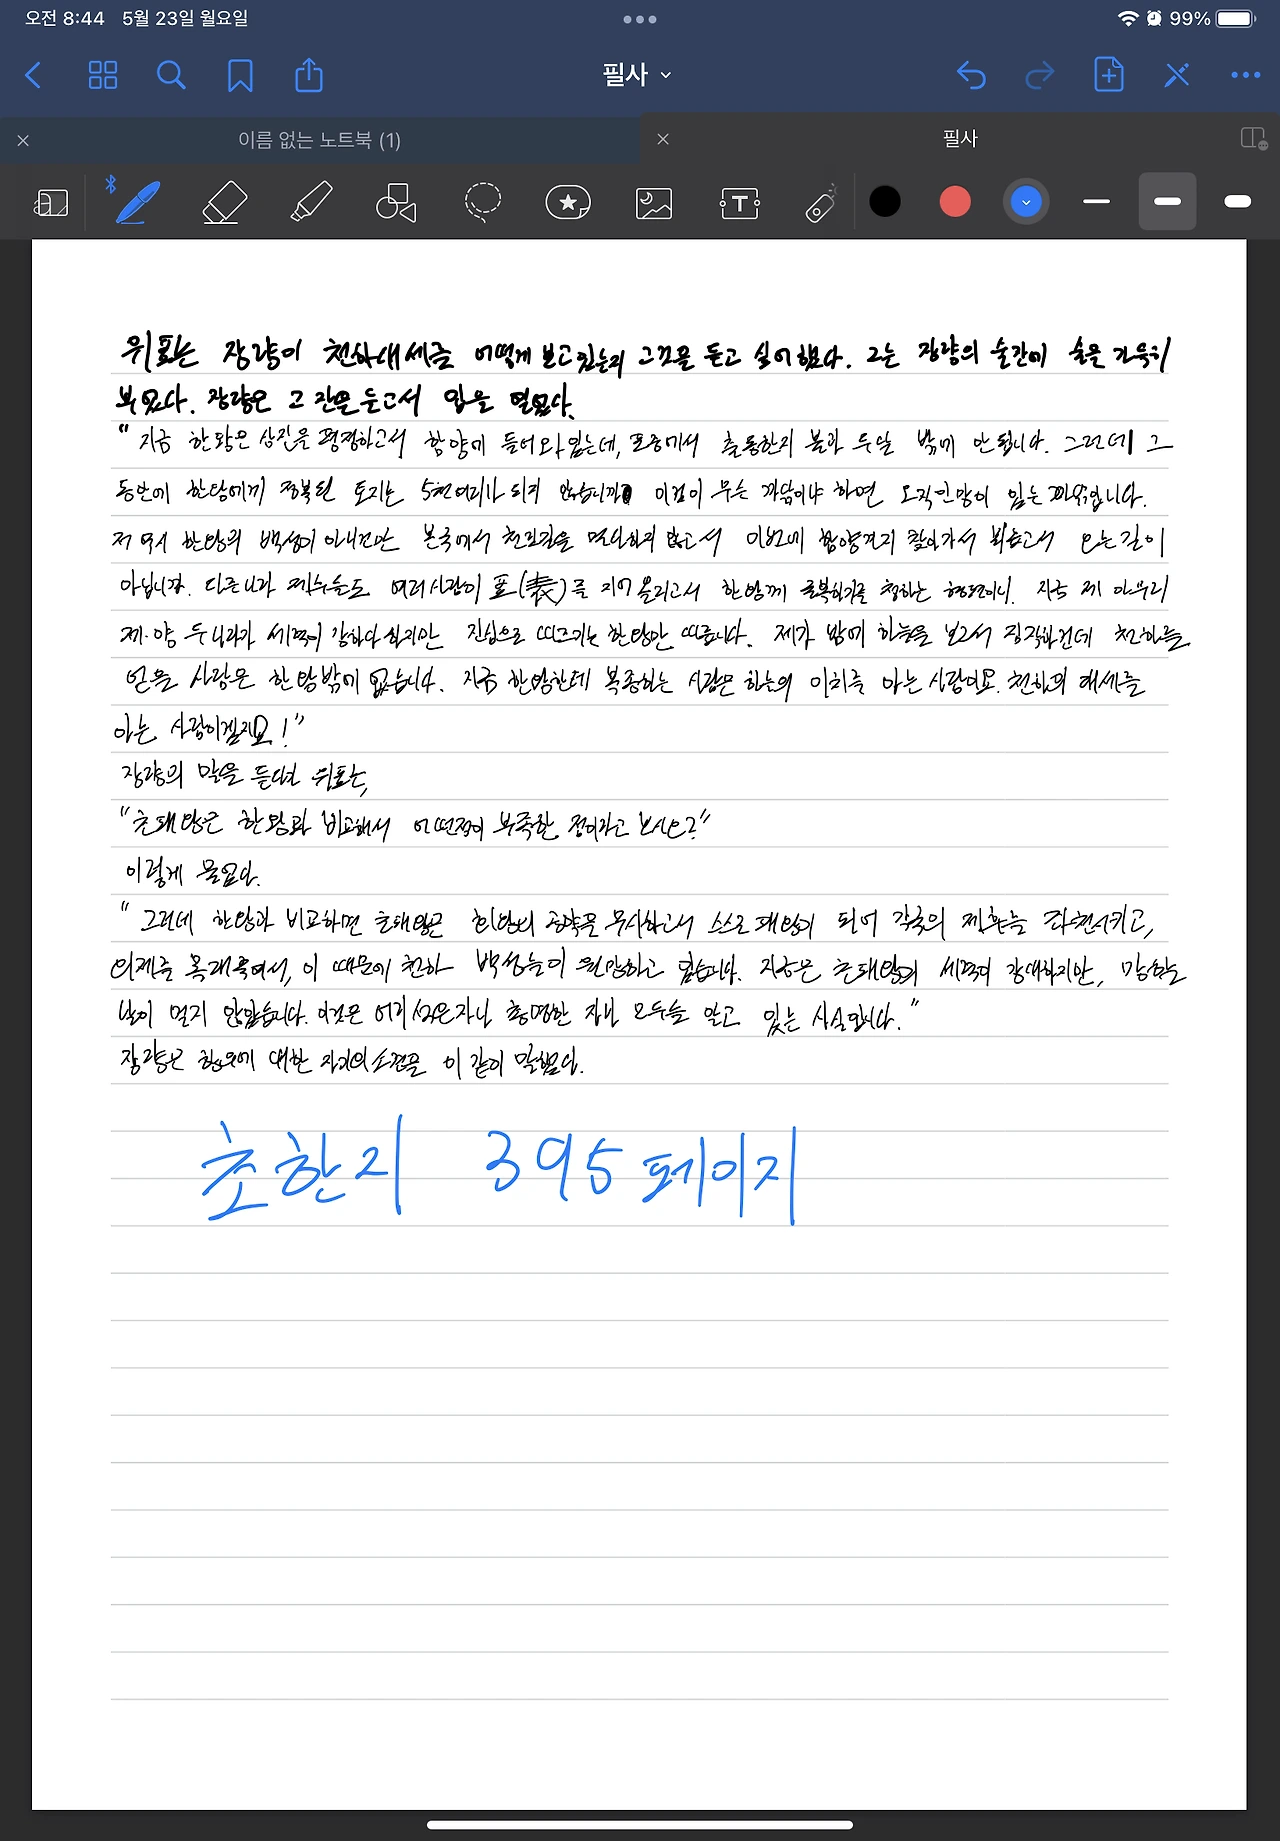 오전 8:44 5월 23일 월요일
99%
필사
이름 없는 노트북 (1)
필사
위표는 장량이 천하대세를 어떻게 보고 있는지 그것을 듣고 싶어했다. 그는 장량의 술잔에 술을 가득히
부었다. 장량은 그 잔을 듣고서 입을 열었다.
"지금 한왕은 삼진을 평정하고서 함양에 들어와 있는데, 포중에서 출동한지 불과 두달 밖에 안됩니다. 그런데 그
동안에 한왕에게 정복된 토지는 5천여리가 되지 않습니까 이것이 무슨 까닭이냐 하면 오직 인망이 있는 까닭입니다.
저 역시 한왕의 백성이 아니건만 본국에서 천리길을 멀다하지 않고서 이번에 함양까지 찾아가서 뵈옵고서 오는길이
아닙니까. 다른나라 제후들도 여러사람이 표(表)를 지어 올리고서 한왕께 항복하기를 청하는 형편이니. 지금 제 아무리
제·양 두나라가 세력이 강하다 하지만 진심으로 따르기는 한왕만 따릅니다. 제가 밤에 하늘을 보고서 짐작하건데 천하를
얻을 사람은 한왕밖에 없습니다. 지금 한왕한테 복종하는 사람은 하늘의 이치를 아는 사람이요. 천하의 대세를
아는 사람이겠지요!"
장량의 말을 듣더니 위표는,
"초패왕은 한왕과 비교해서 어떤점이 부족한 점이라고 보시오?"
이렇게 물었다.
"그런데 한왕과 비교하면 초패왕은 회왕의 공약을 무시하고서 스스로 패왕이 되어 각국의 제후들 좌천시키고,
의제를 몰래 죽여서, 이 때문에 천하 백성들이 원망하고 있습니다. 지금은 초패왕의 세력이 강대하지만, 망할
날이 멀지 않았습니다. 이것은 어리석은자나 총명한 자나 모두들 알고 있는 사실입니다."
장량은 항우에 대한 자기의 소견을 이 같이 말했다.
초한지 395 페이지